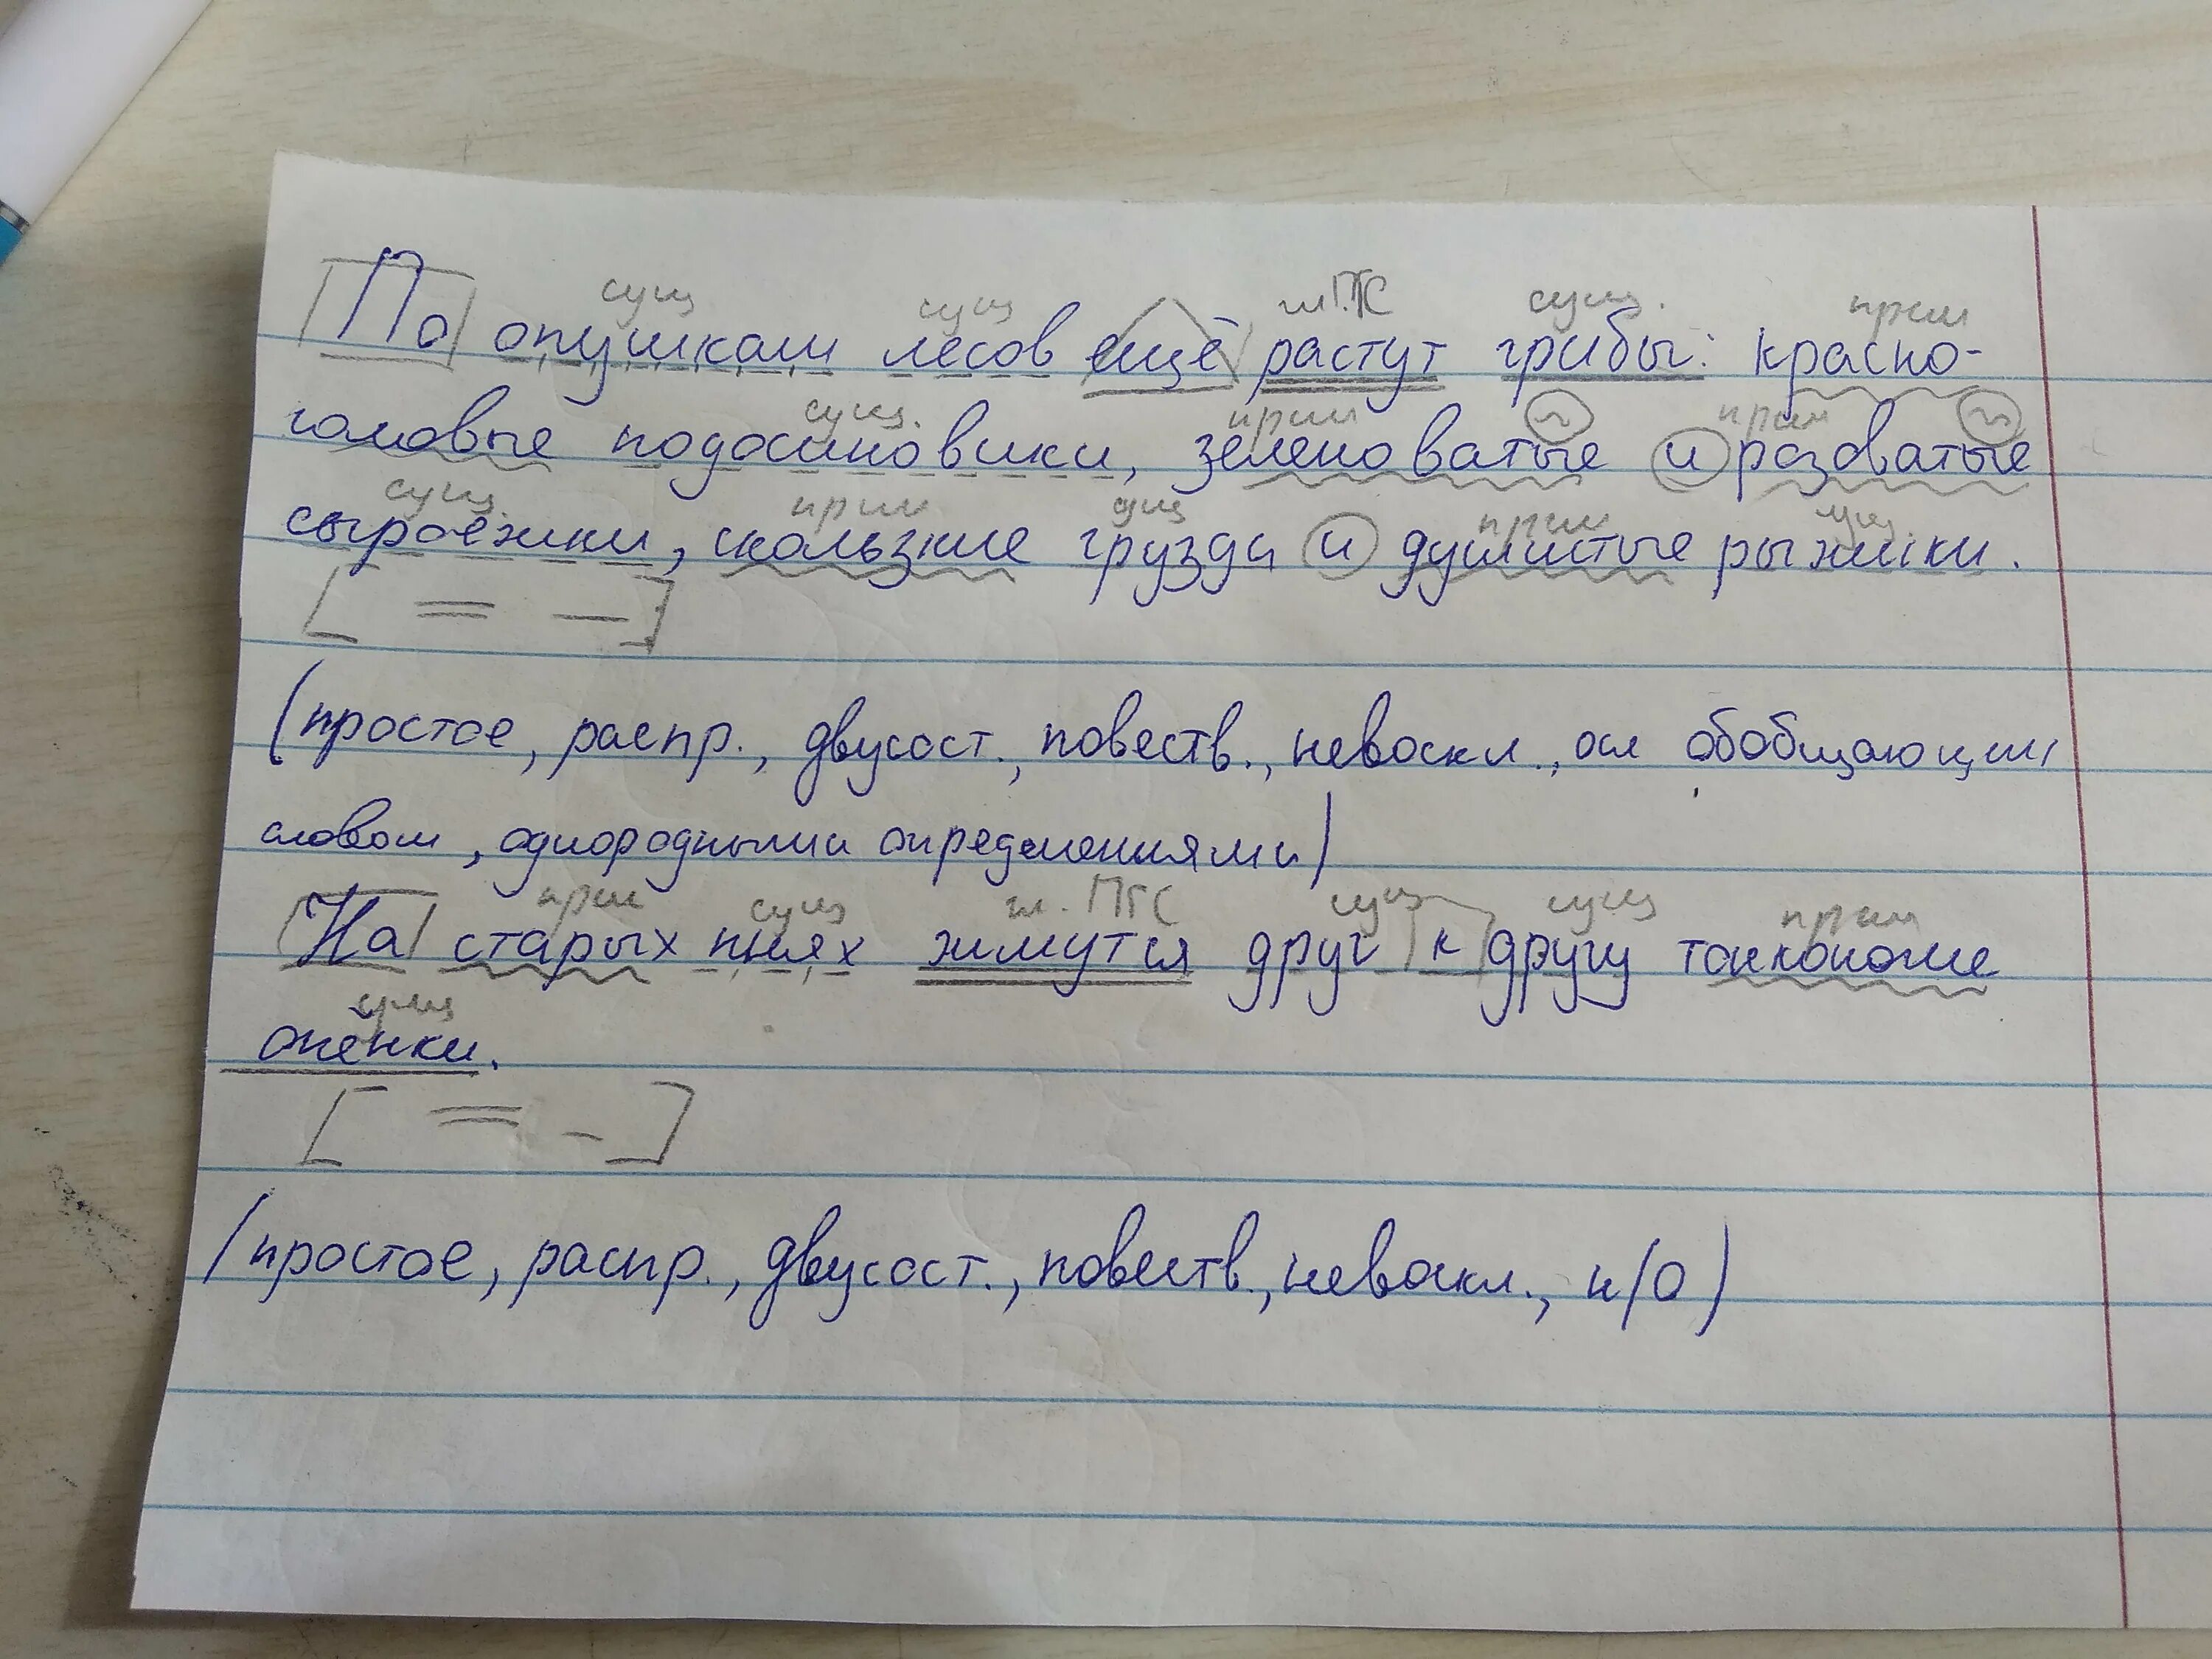 сущ сущ гл.ПГС сущ. прил
По опушкам лесов ещё растут грибы: красно-
сущ. прил прил
головые подосиновики, зеленоватые и розоватые
сущ. прил сущ прил сущ.
сыроежки, скользкие грузди и душистые рыжики.
[ = – ]
(простое, распр., двусост., повеств., невоскл., осл обобщающим
словом, однородными определениями)
прил сущ гл. ПГС сущ сущ прил
На старых пнях жмутся друг к другу тонконогие
сущ
опёнки.
[ = - ]
(простое, распр., двусост., повеств., невоскл., н/о)